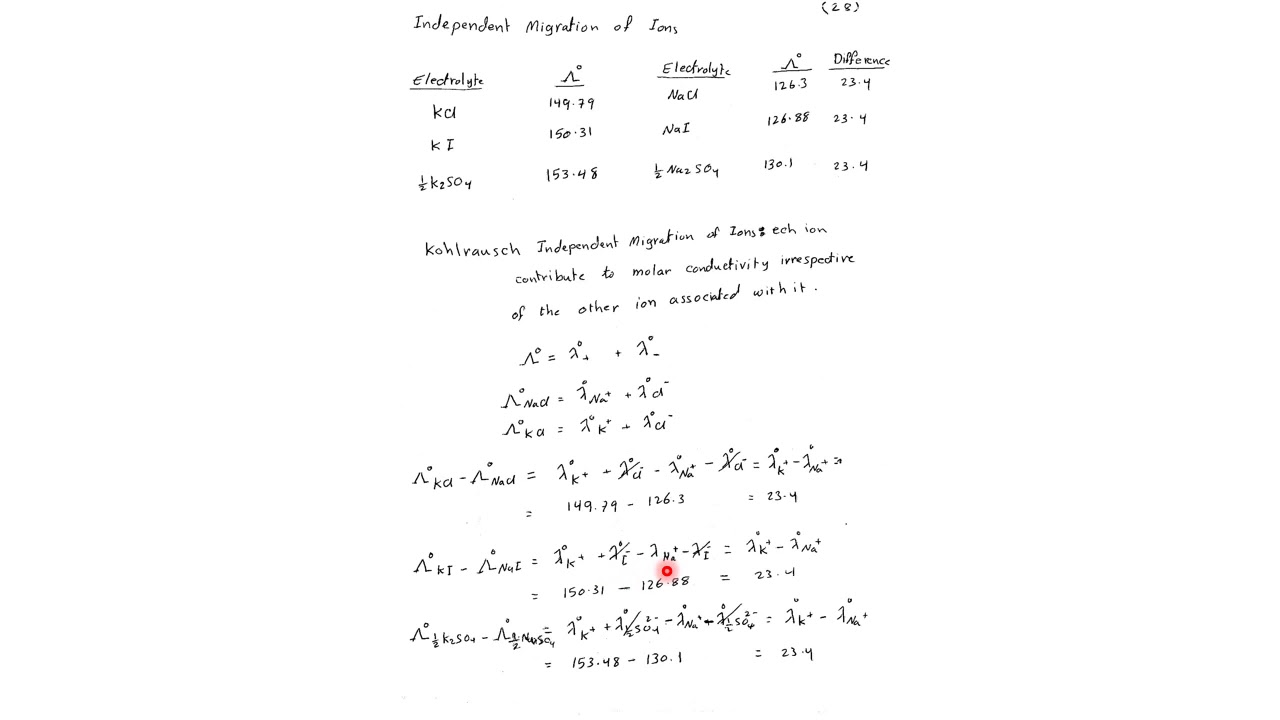 (28)
Independent Migration of Ions
Electrolyte Λ° Electrolyte Λ° Difference
KCl 149.79 NaCl 126.3 23.4
KI 150.31 NaI 126.88 23.4
½K₂SO₄ 153.48 ½Na₂SO₄ 130.1 23.4
Kohlrausch Independent Migration of Ions: ech ion
contribute to molar conductivity irrespective
of the other ion associated with it.
Λ° = λ°₊ + λ°₋
Λ°NaCl = λ°Na⁺ + λ°Cl⁻
Λ°KCl = λ°K⁺ + λ°Cl⁻
Λ°KCl - Λ°NaCl = λ°K⁺ + λ°Cl⁻ - λ°Na⁺ - λ°Cl⁻ = λ°K⁺ - λ°Na⁺ =
= 149.79 - 126.3 = 23.4
Λ°KI - Λ°NaI = λ°K⁺ + λ°I⁻ - λNa⁺ - λI⁻ = λ°K⁺ - λ°Na⁺
= 150.31 - 126.88 = 23.4
Λ°½K₂SO₄ - Λ°½Na₂SO₄ = λ°K⁺ + λ°½SO₄²⁻ - λ°Na⁺ - λ°½SO₄²⁻ = λ°K⁺ - λ°Na⁺
= 153.48 - 130.1 = 23.4